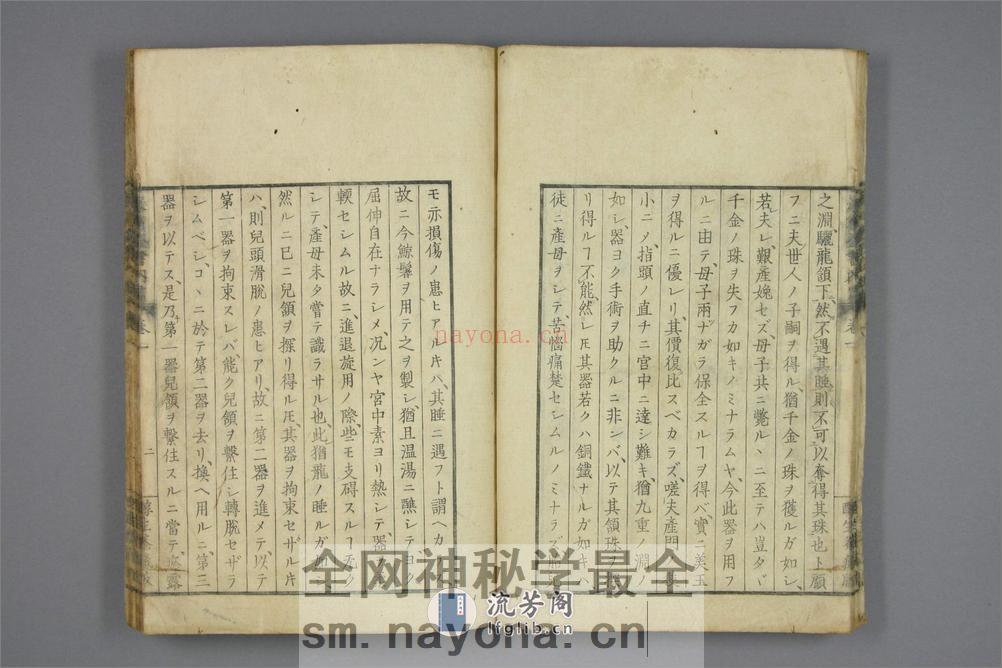 之淵、驪龍頷下、然不遇其睡、則不可以奪得其珠也ト、願
フニ夫世人ノ子嗣ヲ得ル、猶千金ノ珠ヲ獲ルガ如シ、
若夫レ、艱產娩セズ、母子共ニ斃ルヽニ至テハ豈タヾ
千金ノ珠ヲ失フカ如キノミナラムヤ、今此器ヲ用フ
ルニ由テ、母子兩ナガラ保全スルヿヲ得バ、實ニ美玉
ヲ得ルニ優レリ、其價復比スベカラズ、嗟夫產門
小ニメ、指頭ノ直チニ宮中ニ達シ難キ、猶九重ノ淵ノ
如シ、器ヨク手術ヲ助クルニ非ンバ、以テ其頷珠ノ
リ得ルヿ不能、然レ𪜈其器若クハ銅鐵ナルガ如キハ
徒ニ產母ヲシテ、苦惱痛楚セシムルノミナラズ
モ亦損傷ノ患ヒアルキハ、其睡ニ遇フト謂ヘカ
故ニ今鯨鬚ヲ用テ之ヲ製シ、猶且温湯ニ醮シテヨク
屈伸自在ナラシメ、况ンヤ宮中素ヨリ熱シテ器ノ
輭セシムル故ニ、進退旋用ノ際、些モ支碍スルヿ无ク
シテ、產母未タ嘗テ識ラサル也、此猶龍ノ睡ルガ
然ルニ已ニ兒頷ヲ探リ得ル𪜈、其器ヲ拘束セザルキ
ハ、則兒頭滑脫ノ患ヒアリ、故ニ第二器ヲ進メテ、以テ
第一器ヲ拘束スレバ、能ク兒頷ヲ繫住シ轉脫セザラ
シムベシ、コヽニ於テ第二器ヲ去リ、換ヘ用ルニ、第三
器ヲ以テス、是乃第一器兒頷ヲ繫住スルニ當テ、露
卷一
二
全网神秘学最全
nayona.cn
流芳阁
lfglib.cn
sm.nayona.cn